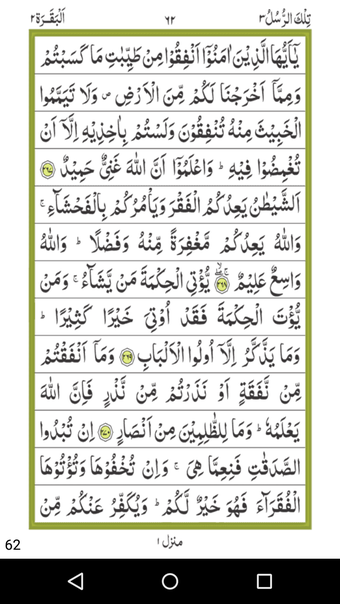 تِلْكَ الرُّسُلُ ٣ ٦٢ اَلْبَقَرَة ٢
يٰۤاَيُّهَا الَّذِيْنَ اٰمَنُوْۤا اَنْفِقُوْا مِنْ طَيِّبٰتِ مَا كَسَبْتُمْ
وَمِمَّاۤ اَخْرَجْنَا لَكُمْ مِّنَ الْاَرْضِ ۪ وَلَا تَيَمَّمُوا
الْخَبِيْثَ مِنْهُ تُنْفِقُوْنَ وَلَسْتُمْ بِاٰخِذِيْهِ اِلَّاۤ اَنْ
تُغْمِضُوْا فِيْهِ ؕ وَاعْلَمُوْۤا اَنَّ اللّٰهَ غَنِيٌّ حَمِيْدٌ ﴿٢٦٧﴾
اَلشَّيْطٰنُ يَعِدُكُمُ الْفَقْرَ وَيَاْمُرُكُمْ بِالْفَحْشَآءِ ۚ
وَاللّٰهُ يَعِدُكُمْ مَّغْفِرَةً مِّنْهُ وَفَضْلًا ؕ وَاللّٰهُ
وَاسِعٌ عَلِيْمٌ ﴿٢٦٨﴾ۙ يُّؤْتِي الْحِكْمَةَ مَنْ يَّشَآءُ ۚ وَمَنْ
يُّؤْتَ الْحِكْمَةَ فَقَدْ اُوْتِيَ خَيْرًا كَثِيْرًا ؕ
وَمَا يَذَّكَّرُ اِلَّاۤ اُولُوا الْاَلْبَابِ ﴿٢٦٩﴾ وَمَاۤ اَنْفَقْتُمْ
مِّنْ نَّفَقَةٍ اَوْ نَذَرْتُمْ مِّنْ نَّذْرٍ فَاِنَّ اللّٰهَ
يَعْلَمُهٗ ؕ وَمَا لِلظّٰلِمِيْنَ مِنْ اَنْصَارٍ ﴿٢٧٠﴾ اِنْ تُبْدُوا
الصَّدَقٰتِ فَنِعِمَّا هِيَ ۚ وَاِنْ تُخْفُوْهَا وَتُؤْتُوْهَا
الْفُقَرَآءَ فَهُوَ خَيْرٌ لَّكُمْ ؕ وَيُكَفِّرُ عَنْكُمْ مِّنْ
منزل ١
62